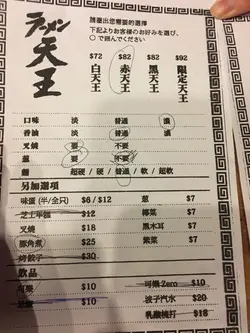 ラーメン
天王
請圈出您需要的選擇
下記よりお客様のお好みを選び、
○で囲んでください
$72 $82 $82 $92
白天王 赤天王 黑天王 限定天王
口味 淡 普通 濃
香油 淡 普通 濃
叉燒 要 不要
蔥 要 不要
麵 超硬 / 硬 / 普通 / 軟 / 超軟
另加選項
味蛋 (半/全只) $8 / $12
芝士年糕 $12
叉燒 $18
豚角煮 $25
烤餃子 $30
蔥 $7
椰菜 $7
黑木耳 $7
紫菜 $7
飲品
$10
$10
可樂 Zero $10
波子汽水 $20
乳酸梳打 $18